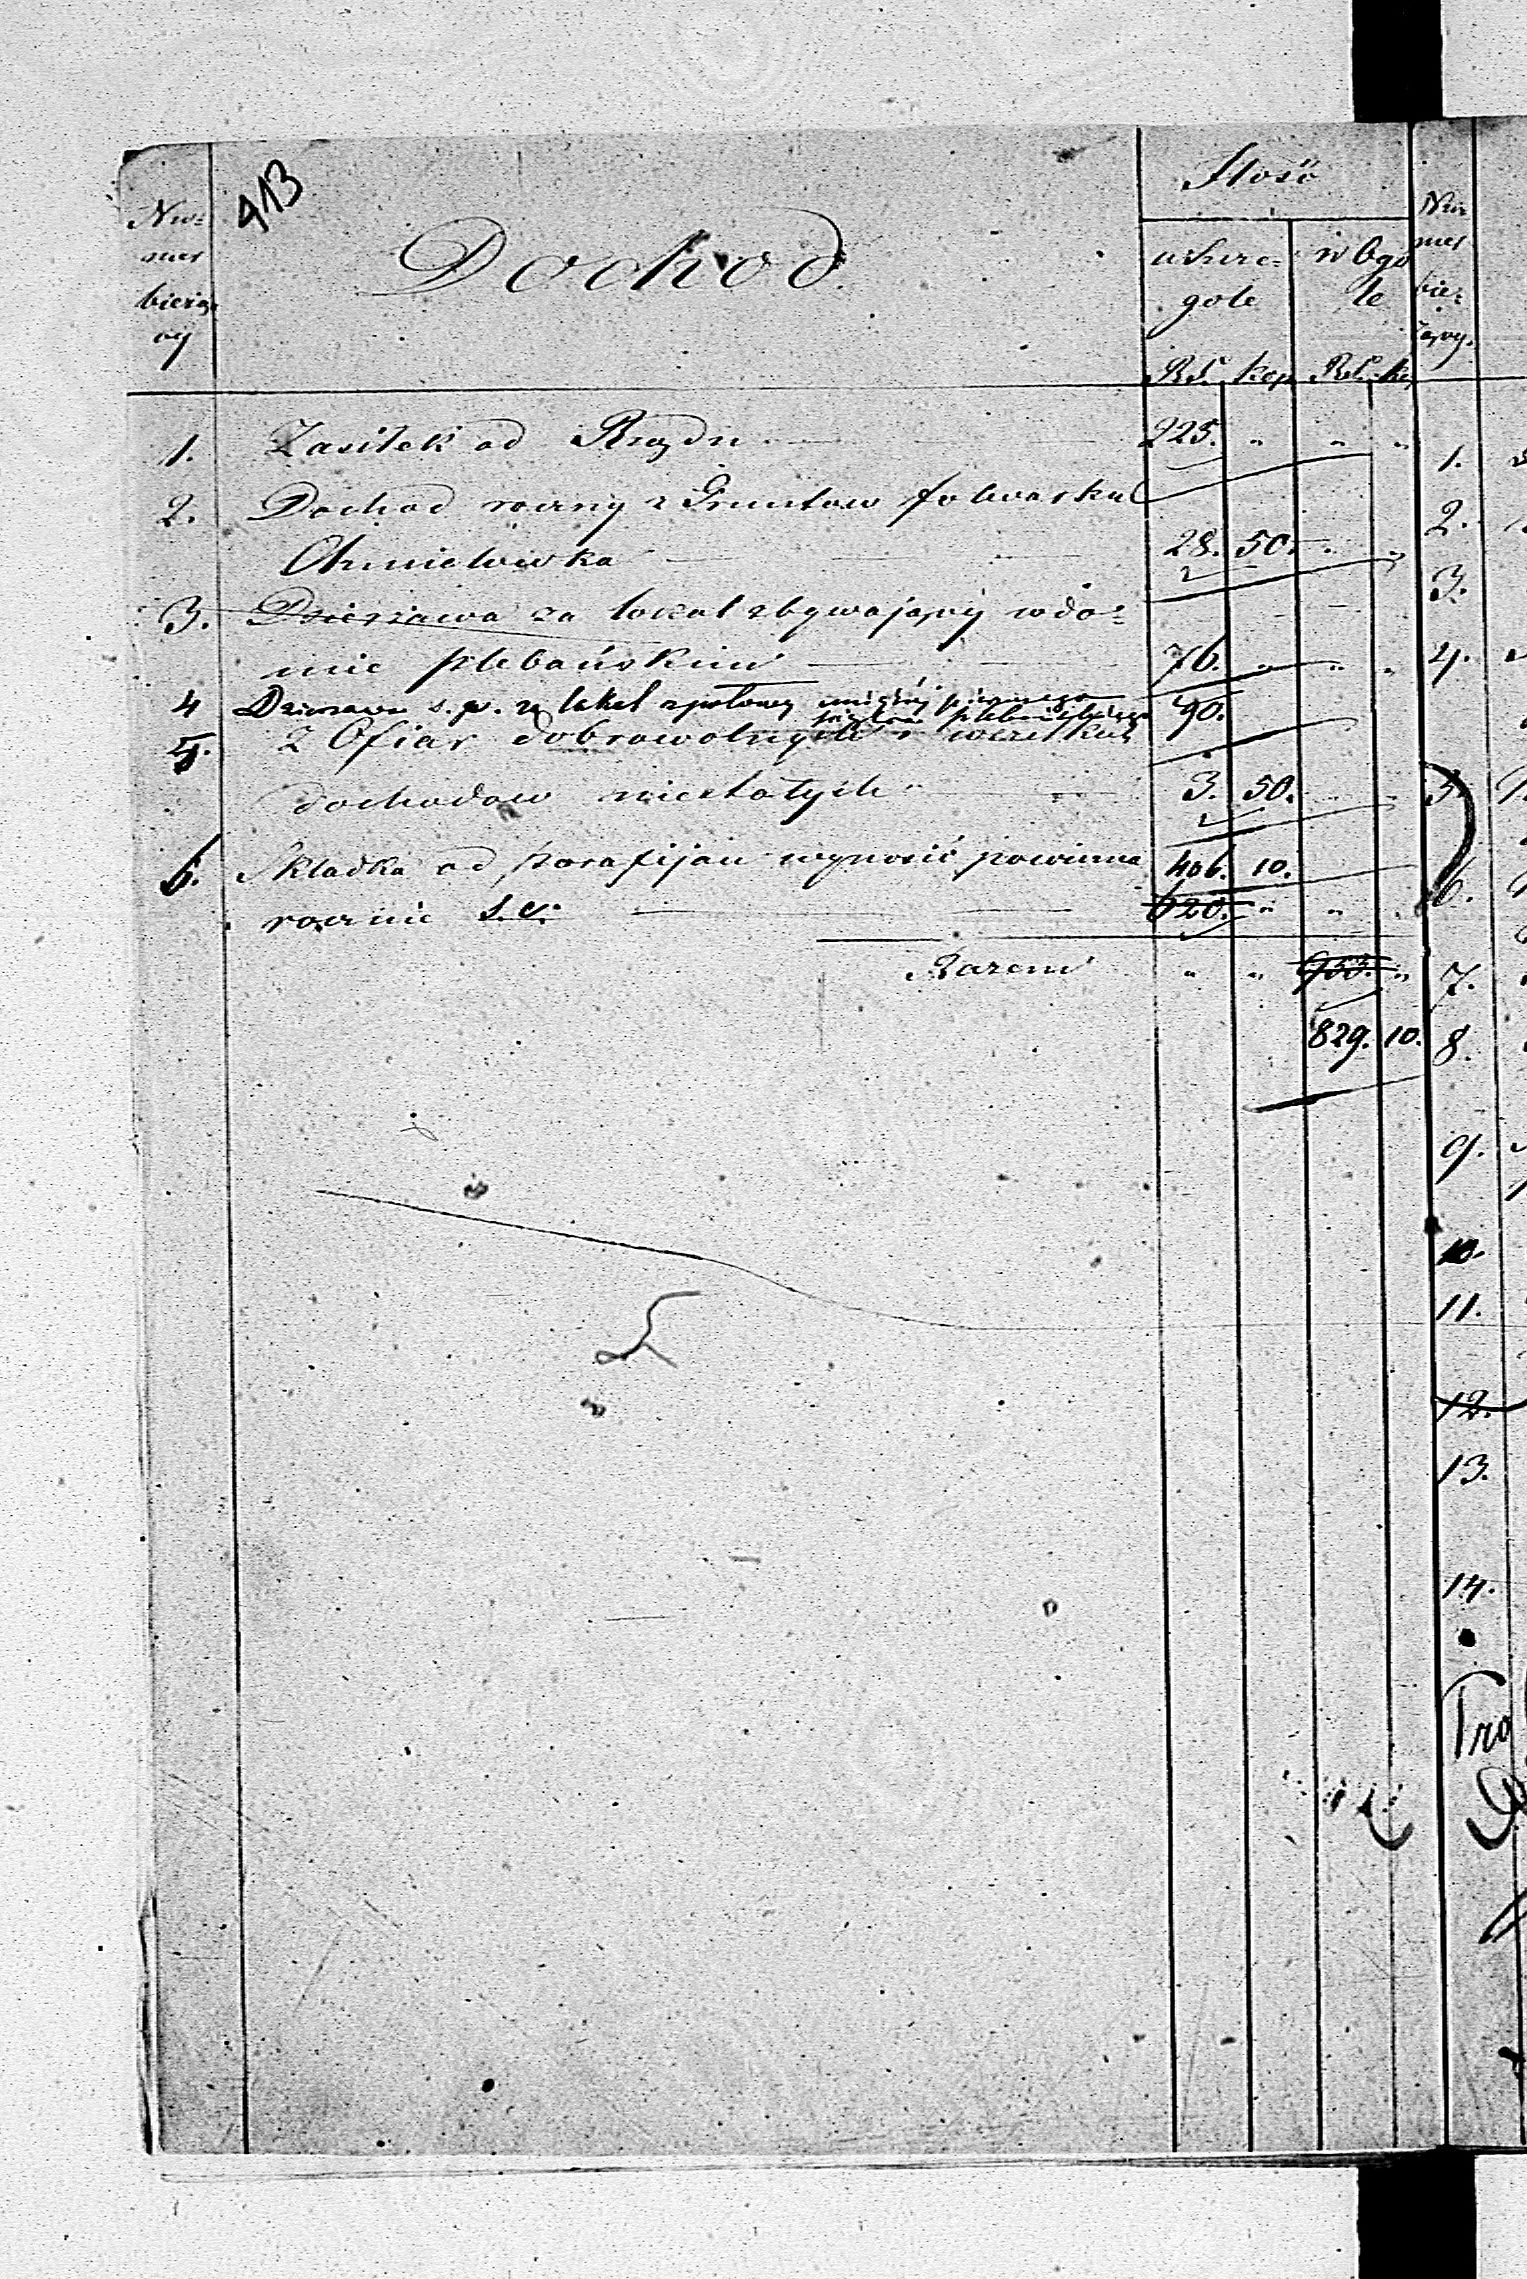 413
Nu=
mer
bieżą=
cy
Dochod.
Ilość
w szcze=
gole
w Ogo
le
RS. kop. RS. ko
1. Zasiłek od Rządu 225. " " "
2. Dochod roczny z Gruntow folwarku
Chmielwiska 28. 50. " "
3. Dzierżawa za lokal zbywający w do=
mie plebańskim 76. " " "
4 Dzierżawa s. p. za lokal 90.
5. Z Ofiar dobrowolnych i wszelkich
dochodow niestałych 3. 50.
6. Składka od parafijan wynosić powinna 406. 10.
rocznie s. c. 620. " "
Razem " " 953. "
829. 10.
Nu
mer
bie=
żący.
1.
2.
3.
4.
5.
6.
7.
8.
9.
10.
11.
12.
13.
14.